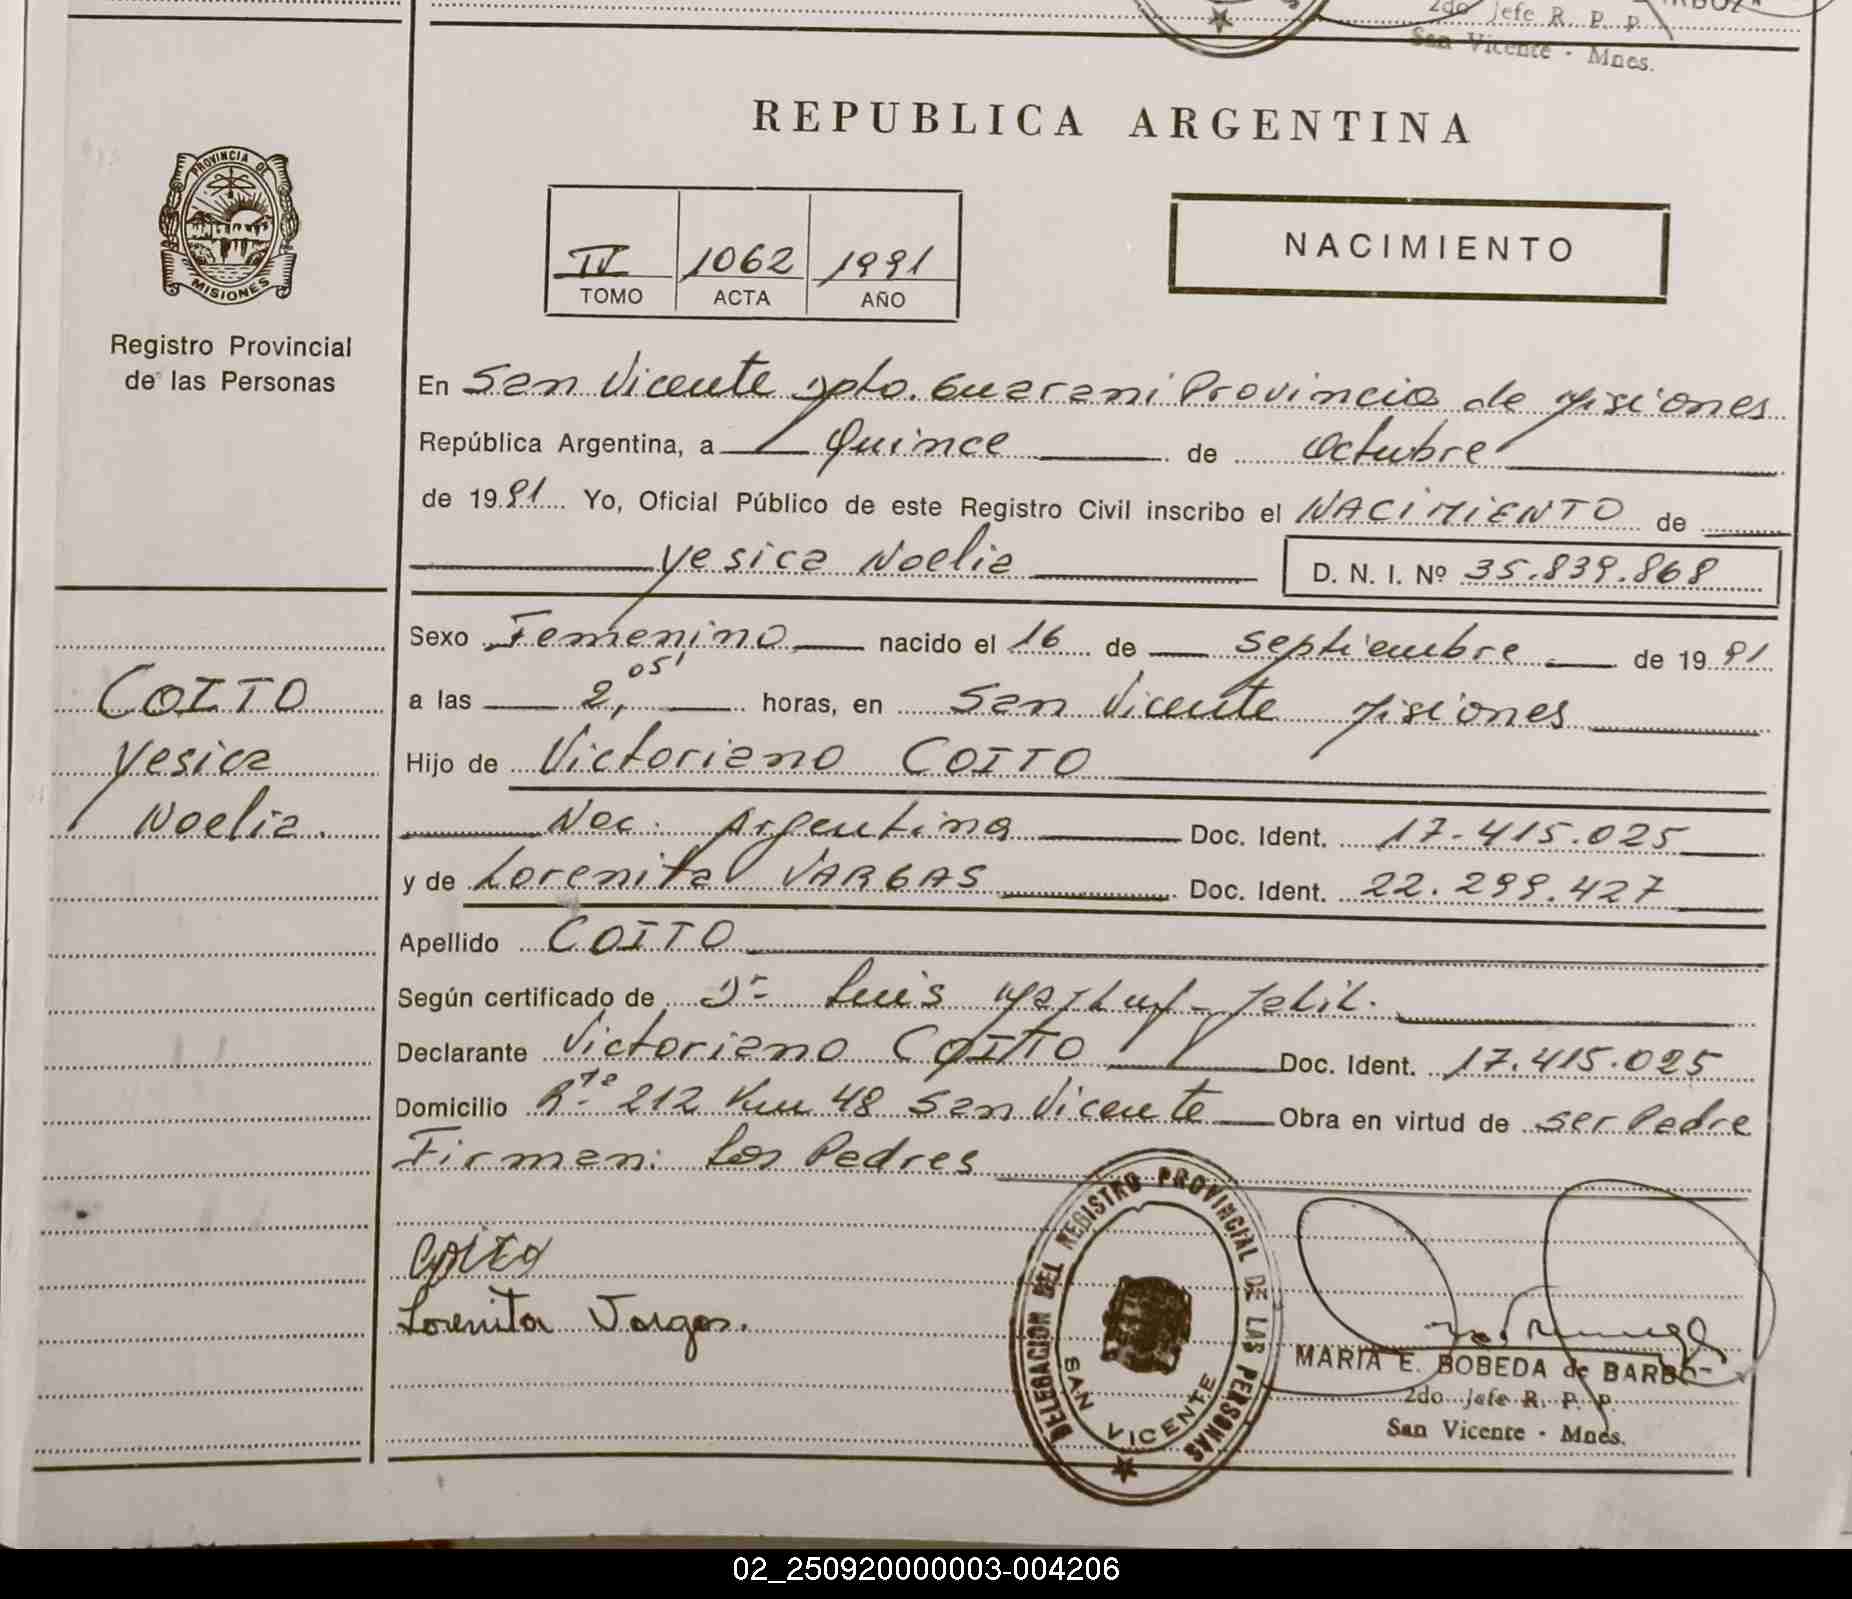 2do Jefe R. P. P.
San Vicente - Mnes.
REPUBLICA ARGENTINA
PROVINCIA DE
MISIONES
Registro Provincial
de las Personas
IV 1062 1991
TOMO ACTA AÑO
NACIMIENTO
En San Vicente Dpto. Guarani Provincia de Misiones
República Argentina, a Quince de Octubre
de 1991 Yo, Oficial Público de este Registro Civil inscribo el NACIMIENTO de
Yesica Noelia D. N. I. Nº 35.839.868
Sexo Femenino nacido el 16 de septiembre de 1991
a las 2,05' horas, en San Vicente Misiones
Hijo de Victoriano COITO
Nac. Argentina Doc. Ident. 17.415.025
y de Lorenita VARGAS Doc. Ident. 22.299.427
Apellido COITO
Según certificado de Dr. Luis
Declarante Victoriano COITO Doc. Ident. 17.415.025
Domicilio Rta 212 Km 48 San Vicente Obra en virtud de ser Padre
Firman: Los Padres
COITO
Yesica
Noelia.
Coito
Lorenita Vargas.
DELEGACION DEL REGISTRO PROVINCIAL DE LAS PERSONAS
SAN VICENTE
MARIA E. BOBEDA de BARBO
2do Jefe R. P. P.
San Vicente - Mnes.
02_250920000003-004206